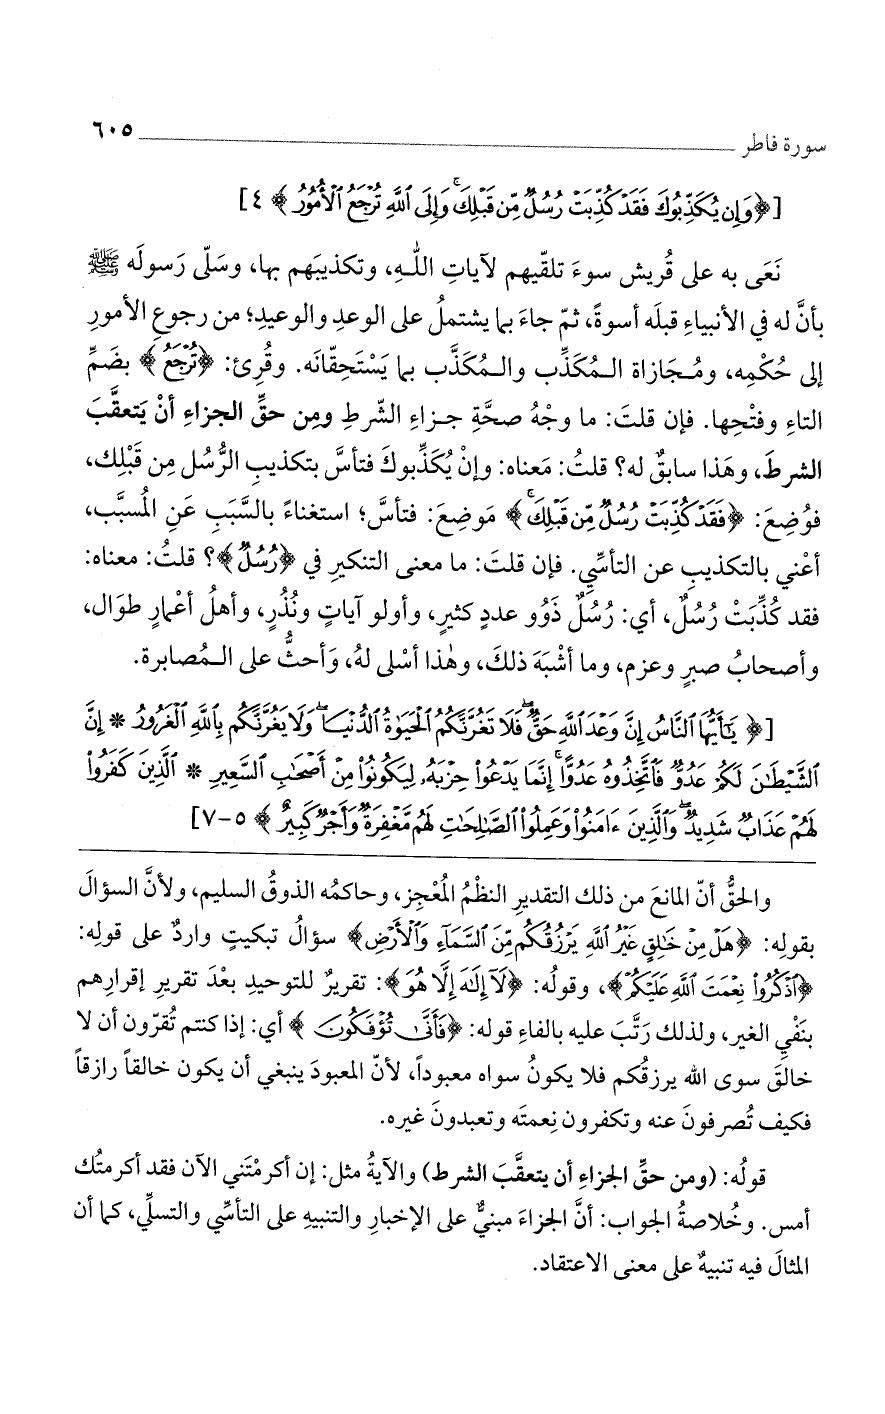 سورة فاطر ٦٠٥
[﴿وَإِن يُكَذِّبُوكَ فَقَدْ كُذِّبَتْ رُسُلٌ مِّن قَبْلِكَ ۚ وَإِلَى ٱللَّهِ تُرْجَعُ ٱلْأُمُورُ﴾ ٤]
نَعَى به على قُريش سوءَ تلقّيهم لآياتِ اللهِ، وتكذيبَهم بها، وسَلّى رَسولَه ﷺ
بأنَّ له في الأنبياءِ قبلَه أسوةً، ثمّ جاءَ بما يشتملُ على الوعدِ والوعيدِ؛ من رجوعِ الأمورِ
إلى حُكْمِه، ومُجَازاة المُكَذِّب والمُكَذَّب بما يَسْتَحِقّانَه. وقُرِئ: ﴿تُرْجَعُ﴾ بضَمِّ
التاءِ وفتْحِها. فإن قلتَ: ما وجْهُ صحَّةِ جزاءِ الشّرطِ ومِن حقِّ الجزاءِ أنْ يَتعقَّبَ
الشرطَ، وهَذا سابقٌ له؟ قلتُ: مَعناه: وإنْ يُكَذِّبوكَ فتأسَّ بتكذيبِ الرُّسُل مِن قَبْلِك،
فوُضِعَ: ﴿فَقَدْ كُذِّبَتْ رُسُلٌ مِّن قَبْلِكَ﴾ مَوضِعَ: فتأسَّ؛ استغناءً بالسَّبَبِ عَنِ المُسبَّب،
أعْني بالتكذيبِ عن التأسِّي. فإن قلتَ: ما معنى التنكيرِ في ﴿رُسُلٌ﴾؟ قلتُ: معناه:
فقد كُذِّبَتْ رُسُلٌ، أي: رُسُلٌ ذَوُو عددٍ كثيرٍ، وأولو آياتٍ ونُذُرٍ، وأهلُ أعْمارٍ طوَال،
وأصحابُ صبرٍ وعزم، وما أشْبَهَ ذلكَ، وهٰذا أسْلى لهُ، وَأحثُّ على المُصابرة.
[﴿يَٰٓأَيُّهَا ٱلنَّاسُ إِنَّ وَعْدَ ٱللَّهِ حَقٌّ ۖ فَلَا تَغُرَّنَّكُمُ ٱلْحَيَوٰةُ ٱلدُّنْيَا ۖ وَلَا يَغُرَّنَّكُم بِٱللَّهِ ٱلْغَرُورُ * إِنَّ
ٱلشَّيْطَٰنَ لَكُمْ عَدُوٌّ فَٱتَّخِذُوهُ عَدُوًّا ۚ إِنَّمَا يَدْعُوا۟ حِزْبَهُۥ لِيَكُونُوا۟ مِنْ أَصْحَٰبِ ٱلسَّعِيرِ * ٱلَّذِينَ كَفَرُوا۟
لَهُمْ عَذَابٌ شَدِيدٌ ۖ وَٱلَّذِينَ ءَامَنُوا۟ وَعَمِلُوا۟ ٱلصَّٰلِحَٰتِ لَهُم مَّغْفِرَةٌ وَأَجْرٌ كَبِيرٌ﴾ ٥-٧]
والحقُّ أنّ المانعَ من ذلك التقديرِ النظْمُ المُعْجِز، وحاكمُه الذوقُ السليم، ولأنَّ السؤالَ
بقولِه: ﴿هَلْ مِنْ خَٰلِقٍ غَيْرُ ٱللَّهِ يَرْزُقُكُم مِّنَ ٱلسَّمَآءِ وَٱلْأَرْضِ﴾ سؤالُ تبكيتٍ واردٌ على قولِه:
﴿ٱذْكُرُوا۟ نِعْمَتَ ٱللَّهِ عَلَيْكُمْ﴾، وقولُه: ﴿لَآ إِلَٰهَ إِلَّا هُوَ﴾: تقريرٌ للتوحيدِ بعْدَ تقريرِ إقرارِهم
بنَفْيِ الغير، ولذلك رَتَّبَ عليه بالفاءِ قوله: ﴿فَأَنَّىٰ تُؤْفَكُونَ﴾ أي: إذا كنتم تُقرّون أن لا
خالقَ سوى الله يرزقُكم فلا يكونُ سواه معبوداً، لأنّ المعبودَ ينبغي أن يكون خالقاً رازقاً
فكيف تُصرفونَ عنه وتكفرون نِعمتَه وتعبدونَ غيره.
قولُه: (ومن حقِّ الجزاءِ أن يتعقَّبَ الشرط) والآيةُ مثل: إن أكرمْتَني الآن فقد أكرمتُك
أمس. وخُلاصةُ الجواب: أنَّ الجزاءَ مبنيٌّ على الإخبارِ والتنبيهِ على التأسِّي والتسلِّي، كما أن
المثالَ فيه تنبيهٌ على معنى الاعتقاد.